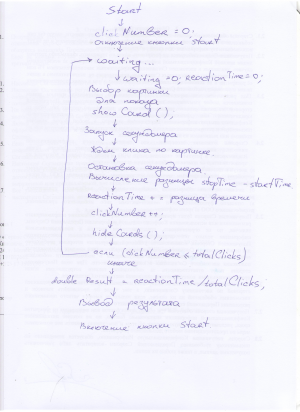 Start
clickNumber = 0;
отключение кнопки start
waiting...
waiting = 0; reactionTime = 0;
Выбор картинки
для показа
showCard();
Запуск секундомера
Ждем клика по картинке.
Остановка секундомера
Вычисление разницы stopTime - startTime
reactionTime += разница времени
clickNumber++;
hideCards();
если (clickNumber < totalClicks)
иначе
double Result = reactionTime/totalClicks;
Вывод результата
Включение кнопки Start.